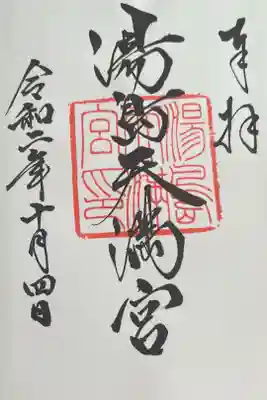 奉拝
湯島天満宮
湯島天満宮印
令和二年十月四日